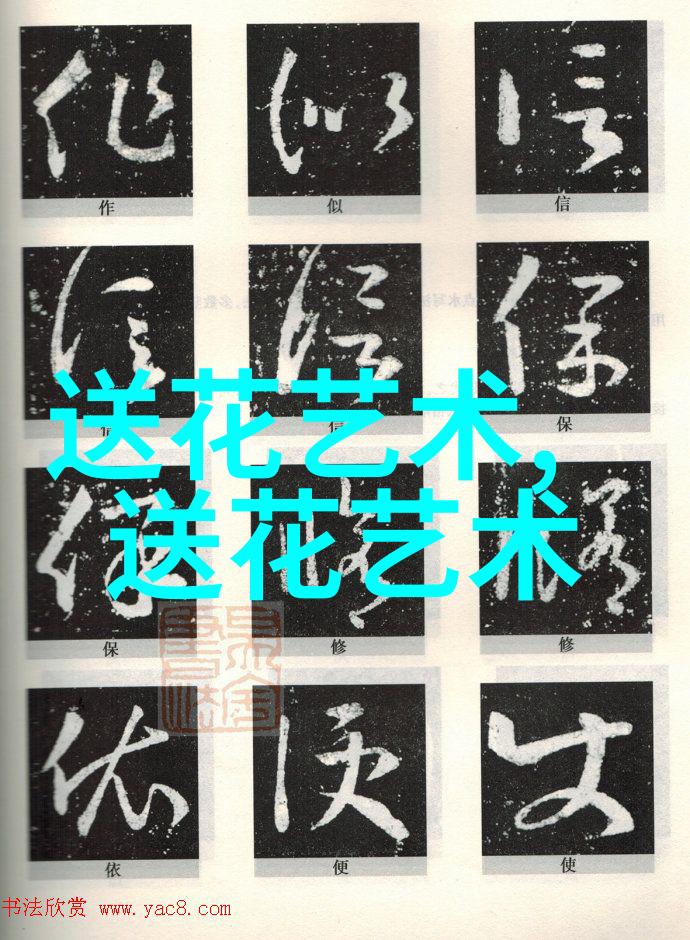 作 似 信
信 信 保
送花艺术,
送花艺术
保 修 修
依 便 使
书法欣赏 www.yac8.com